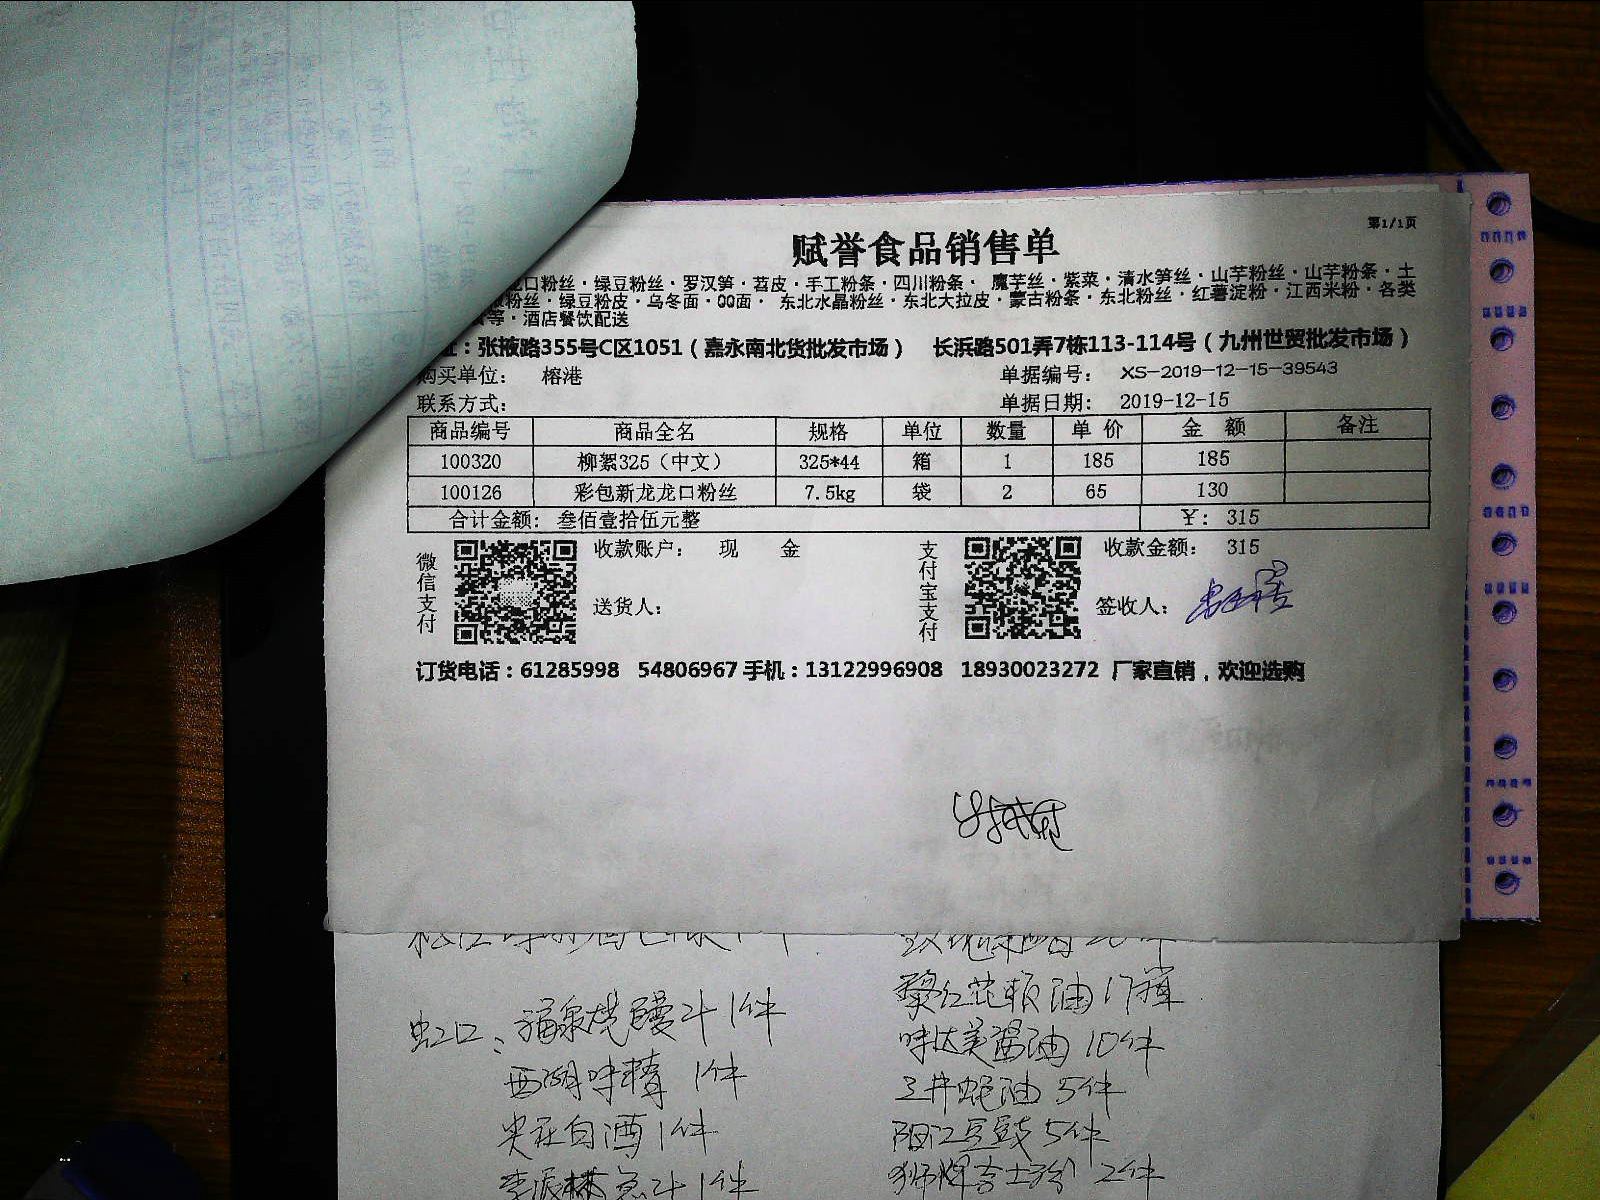 第1/1页
赋誉食品销售单
口粉丝·绿豆粉丝·罗汉笋·苕皮·手工粉条·四川粉条· 魔芋丝·紫菜·清水笋丝·山芋粉丝·山芋粉条·土
粉丝·绿豆粉皮·乌冬面·QQ面· 东北水晶粉丝·东北大拉皮·蒙古粉条·东北粉丝·红薯淀粉·江西米粉·各类
等·酒店餐饮配送
址：张掖路355号C区1051（嘉永南北货批发市场） 长浜路501弄7栋113-114号（九州世贸批发市场）
购买单位： 榕港 单据编号： XS-2019-12-15-39543
联系方式： 单据日期： 2019-12-15
商品编号 商品全名 规格 单位 数量 单价 金额 备注
100320 柳絮325（中文） 325*44 箱 1 185 185
100126 彩包新龙龙口粉丝 7.5kg 袋 2 65 130
合计金额： 叁佰壹拾伍元整 ￥： 315
微信支付 收款账户： 现 金 支付宝支付 收款金额： 315
送货人： 签收人：
订货电话：61285998 54806967 手机：13122996908 18930023272 厂家直销，欢迎选购
虹口： 1件
西湖味精 1件
白酒 1件
1件
油 17箱
味达美酱油 10件
油 5件
阳江豆豉 5件
狮牌吉士粉 2件